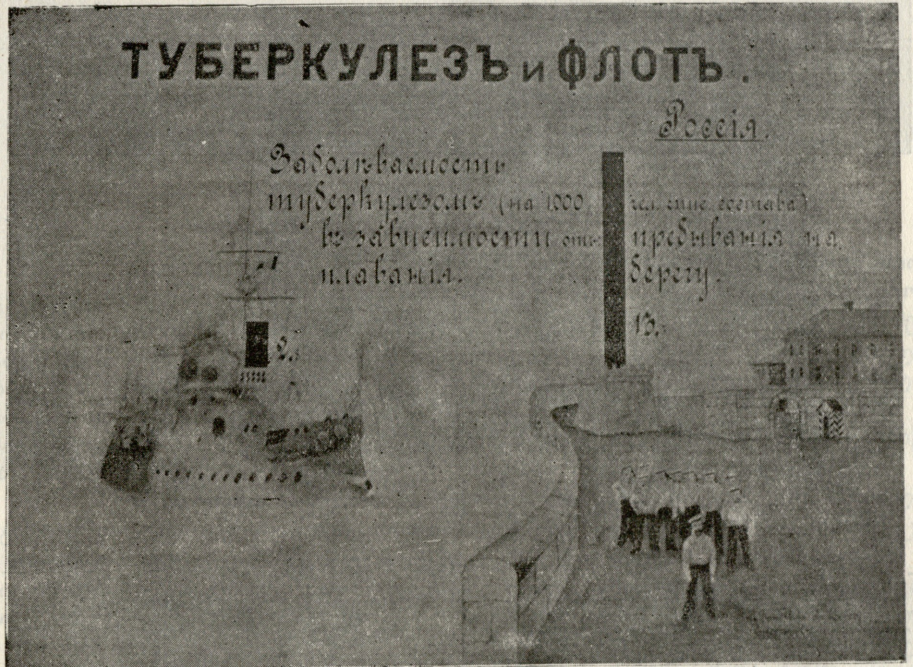 ТУБЕРКУЛЕЗЪ и ФЛОТЪ.
Россія.
Заболѣваемость
туберкулезомъ (на 1000 чел. спис. состава)
въ зависимости отъ пребыванія на
плаванія. берегу.
2.
13.